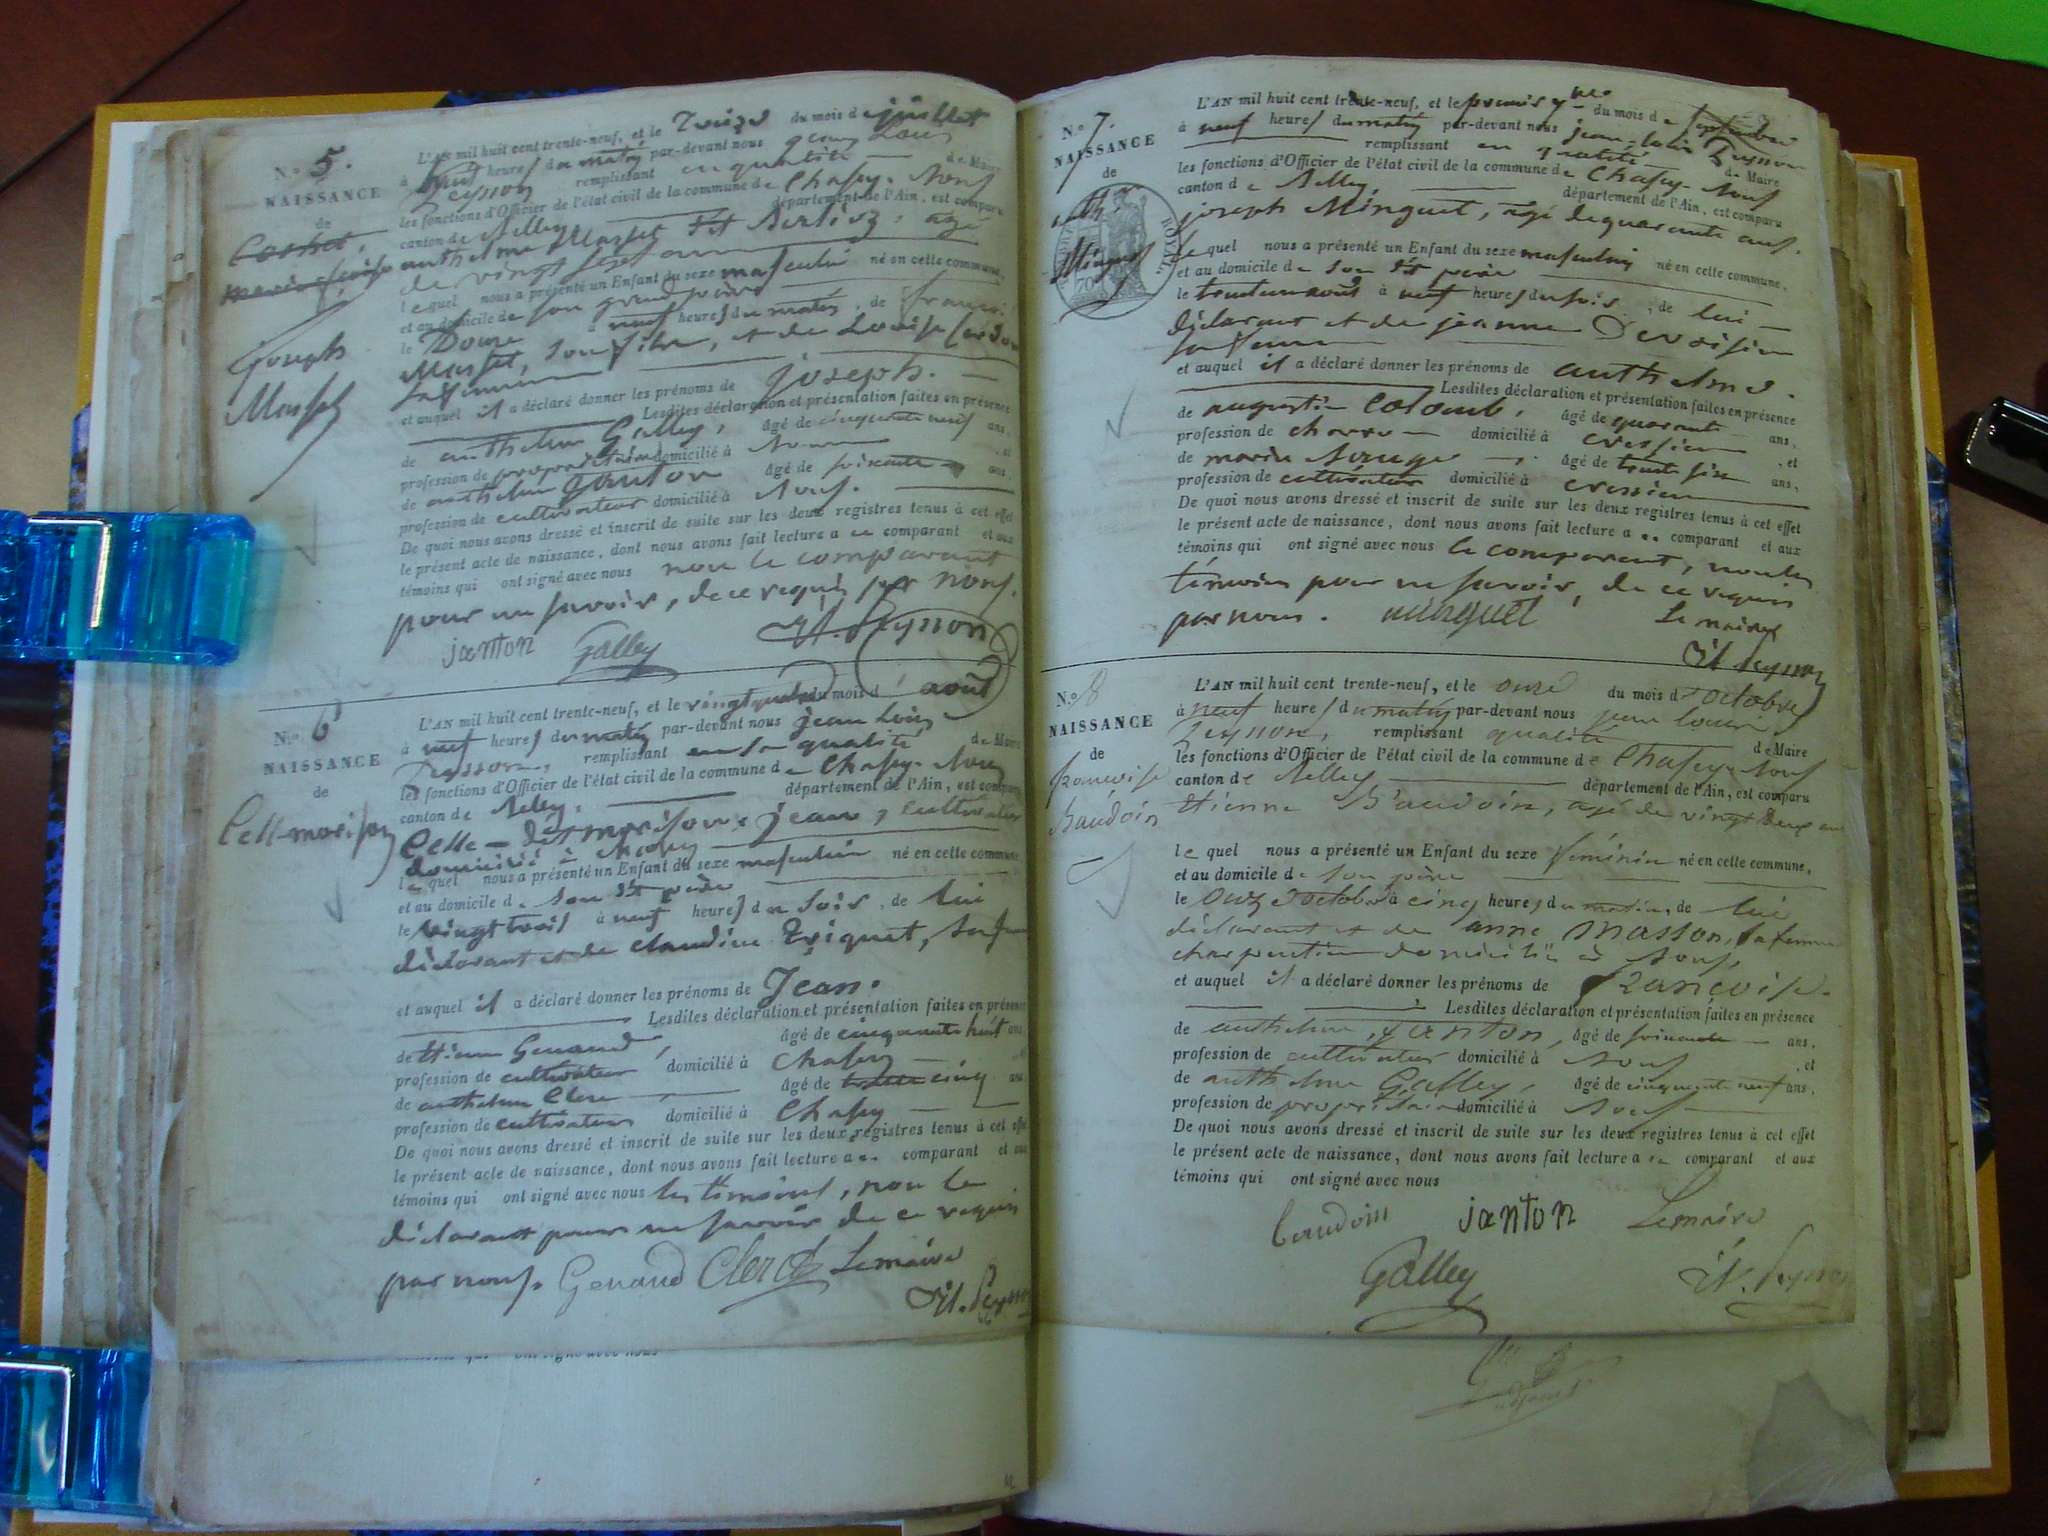 No 5.
NAISSANCE
de
Joseph
Masset
L'AN mil huit cent trente-neuf, et le Treize du mois de juillet
à neuf heures du matin par-devant nous jean Louis
Peysson remplissant en qualité de Maire
les fonctions d'Officier de l'état civil de la commune de Chazey-Nons
canton de Belley département de l'Ain, est comparu
anthelme Masset dit Berlioz, agé
de vingt sept ans
lequel nous a présenté un Enfant du sexe masculin né en cette commune,
et au domicile de son grand père
le Douze à neuf heures du matin, de
Masset, son fils, et de Louise
sa femme
et auquel il a déclaré donner les prénoms de joseph.
Lesdites déclaration et présentation faites en présence
de anthelme Galley, âgé de cinquante neuf ans,
profession de propriétaire domicilié à , et
de anthelme janton âgé de soixante ans,
profession de cultivateur domicilié à
De quoi nous avons dressé et inscrit de suite sur les deux registres tenus à cet effet
le présent acte de naissance, dont nous avons fait lecture a ce comparant et aux
témoins qui ont signé avec nous non le comparant
pour ne savoir, de ce requis par nous.
janton Galley Peysson
No 6
NAISSANCE
de
L'AN mil huit cent trente-neuf, et le vingt quatre du mois d'août
à neuf heures du matin par-devant nous jean Louis
Peysson, remplissant en sa qualité de Maire
les fonctions d'Officier de l'état civil de la commune de
canton de Belley, département de l'Ain, est comparu
jean, cultivateur
domicilié à
lequel nous a présenté un Enfant du sexe masculin né en cette commune,
et au domicile de son dt père
le vingt trois à neuf heures du soir, de lui
déclarant et de claudine Triquet, sa
et auquel il a déclaré donner les prénoms de Jean.
Lesdites déclaration et présentation faites en présence
de Etienne Genand, âgé de cinquante huit ans
profession de cultivateur domicilié à Chazey
de anthelme Clerc âgé de trente cinq ans
profession de cultivateur domicilié à Chazey
De quoi nous avons dressé et inscrit de suite sur les deux registres tenus à cet effet
le présent acte de naissance, dont nous avons fait lecture a ce comparant et aux
témoins qui ont signé avec nous les témoins, non le
déclarant pour ne savoir de ce requis
par nous. Genaud Clerc Le maire
Peysson
No 7.
NAISSANCE
de
anth.
Minguet
L'AN mil huit cent trente-neuf, et le premier du mois de septembre
à neuf heures du matin par-devant nous jean-Louis Peysson
remplissant en qualité de Maire
les fonctions d'Officier de l'état civil de la commune de
canton de Belley, département de l'Ain, est comparu
joseph Minguet, agé de quarante ans.
lequel nous a présenté un Enfant du sexe masculin né en cette commune,
et au domicile de son dt père
le trente un août à neuf heures du soir, de lui
déclarant et de jeanne Devoisin
sa femme
et auquel il a déclaré donner les prénoms de anthelme.
Lesdites déclaration et présentation faites en présence
de augustin Colomb, âgé de quarante ans,
profession de domicilié à cressieu, et
de âgé de trente six ans,
profession de cultivateur domicilié à cressieu
De quoi nous avons dressé et inscrit de suite sur les deux registres tenus à cet effet
le présent acte de naissance, dont nous avons fait lecture a ce comparant et aux
témoins qui ont signé avec nous le comparant, non les
témoins pour ne savoir, de ce requis
par nous. minguet Le maire
Peysson
No 8
NAISSANCE
de
francoise
Baudoin
L'AN mil huit cent trente-neuf, et le onze du mois d'octobre
à neuf heures du matin par-devant nous jean Louis
Peysson, remplissant qualité de Maire
les fonctions d'Officier de l'état civil de la commune de
canton de Belley département de l'Ain, est comparu
Etienne Baudoin, agé de vingt deux ans
lequel nous a présenté un Enfant du sexe féminin né en cette commune,
et au domicile de son père
le Onze octobre à cinq heures du matin, de lui
déclarant et de anne Masson, sa femme
charpentier domicilié à
et auquel il a déclaré donner les prénoms de francoise.
Lesdites déclaration et présentation faites en présence
de anthelme janton, âgé de soixante ans,
profession de cultivateur domicilié à , et
de anthelme Galley, âgé de cinquante neuf ans,
profession de propriétaire domicilié à
De quoi nous avons dressé et inscrit de suite sur les deux registres tenus à cet effet
le présent acte de naissance, dont nous avons fait lecture a ce comparant et aux
témoins qui ont signé avec nous
baudoin janton Le maire
Galley Peysson